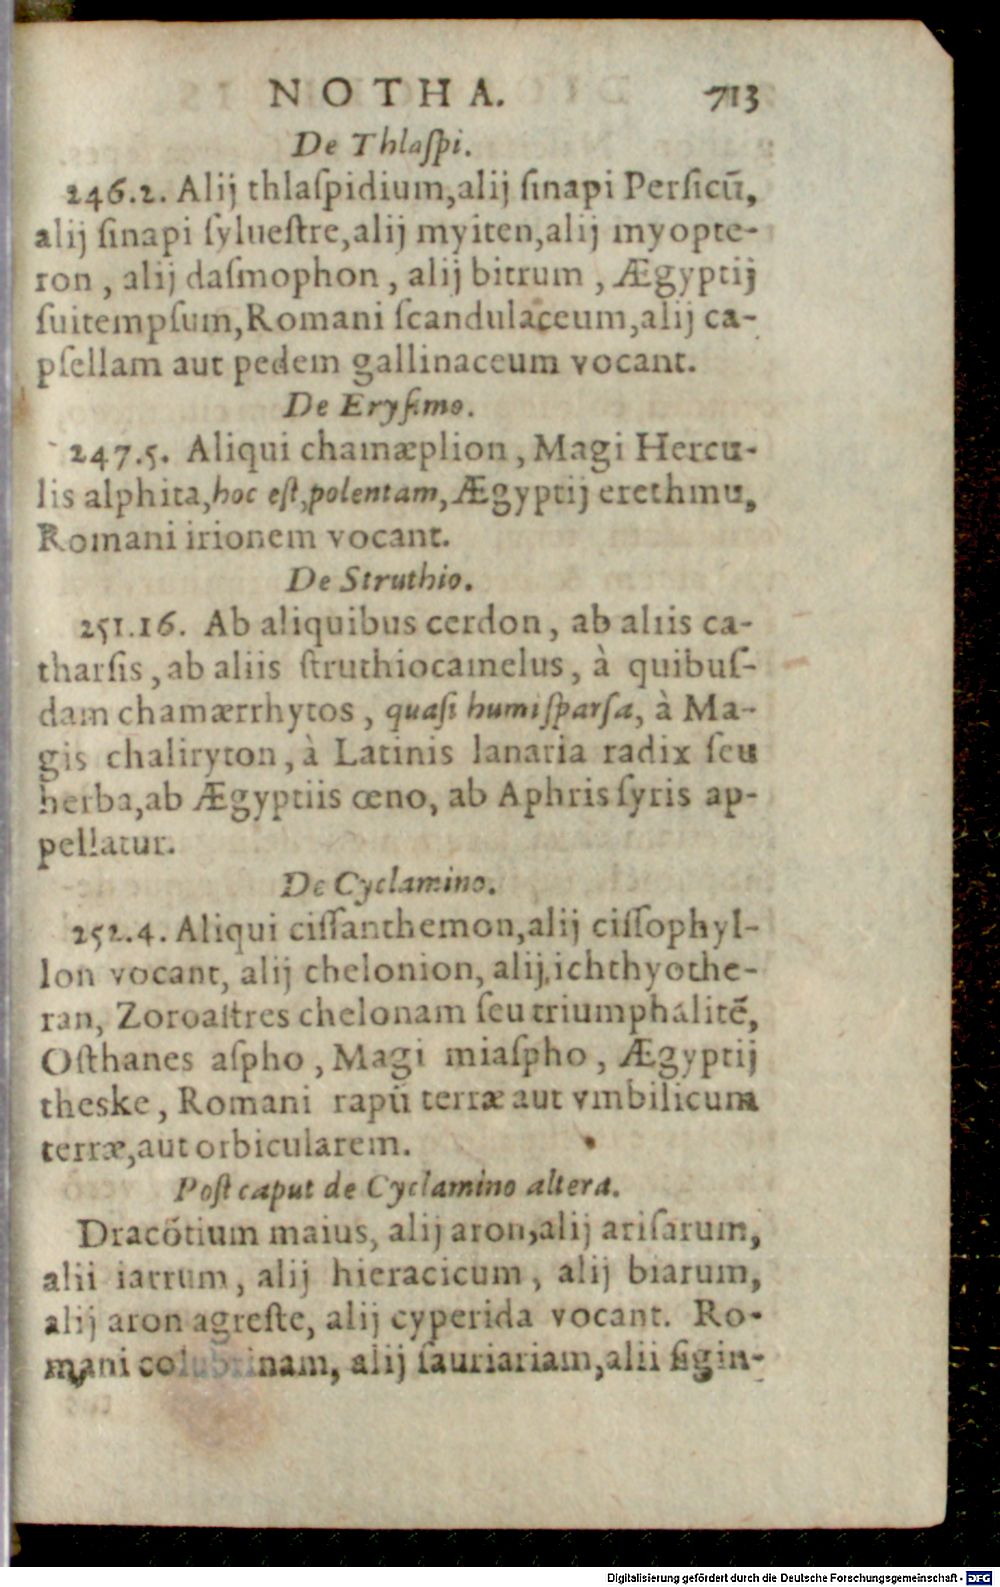 NOTHA. 713
De Thlaſpi.
246.2. Alij thlaſpidium,alij ſinapi Perſicū,
alij ſinapi ſylueſtre,alij myiten,alij myopte-
ron , alij daſmophon , alij bitrum , Ægyptij
ſuitempſum,Romani ſcandulaceum,alij ca-
pſellam aut pedem gallinaceum vocant.
De Eryſimo.
247.5. Aliqui chamæplion , Magi Hercu-
lis alphita,hoc eſt,polentam,Ægyptij erethmu,
Romani irionem vocant.
De Struthio.
251.16. Ab aliquibus cerdon, ab aliis ca-
tharſis , ab aliis ſtruthiocamelus, à quibuſ-
dam chamærrhytos , quaſi humi ſparſa, à Ma-
gis chaliryton, à Latinis lanaria radix ſeu
herba,ab Ægyptiis œno, ab Aphris ſyris ap-
pellatur.
De Cyclamino.
252.4. Aliqui ciſſanthemon,alij ciſſophyl-
lon vocant, alij chelonion, alij ichthyothe-
ran, Zoroaſtres chelonam ſeu triumphalitē,
Oſthanes aſpho , Magi miaſpho , Ægyptij
theske , Romani rapū terræ aut vmbilicum
terræ,aut orbicularem.
Poſt caput de Cyclamino altera.
Dracōtium maius, alij aron,alij ariſarum,
alii iarrum , alij hieracicum , alij biarum,
alij aron agreſte, alij cyperida vocant. Ro-
mani colubrinam, alij ſauriariam,alii ſigin-
Digitalisierung gefördert durch die Deutsche Forschungsgemeinschaft - DFG